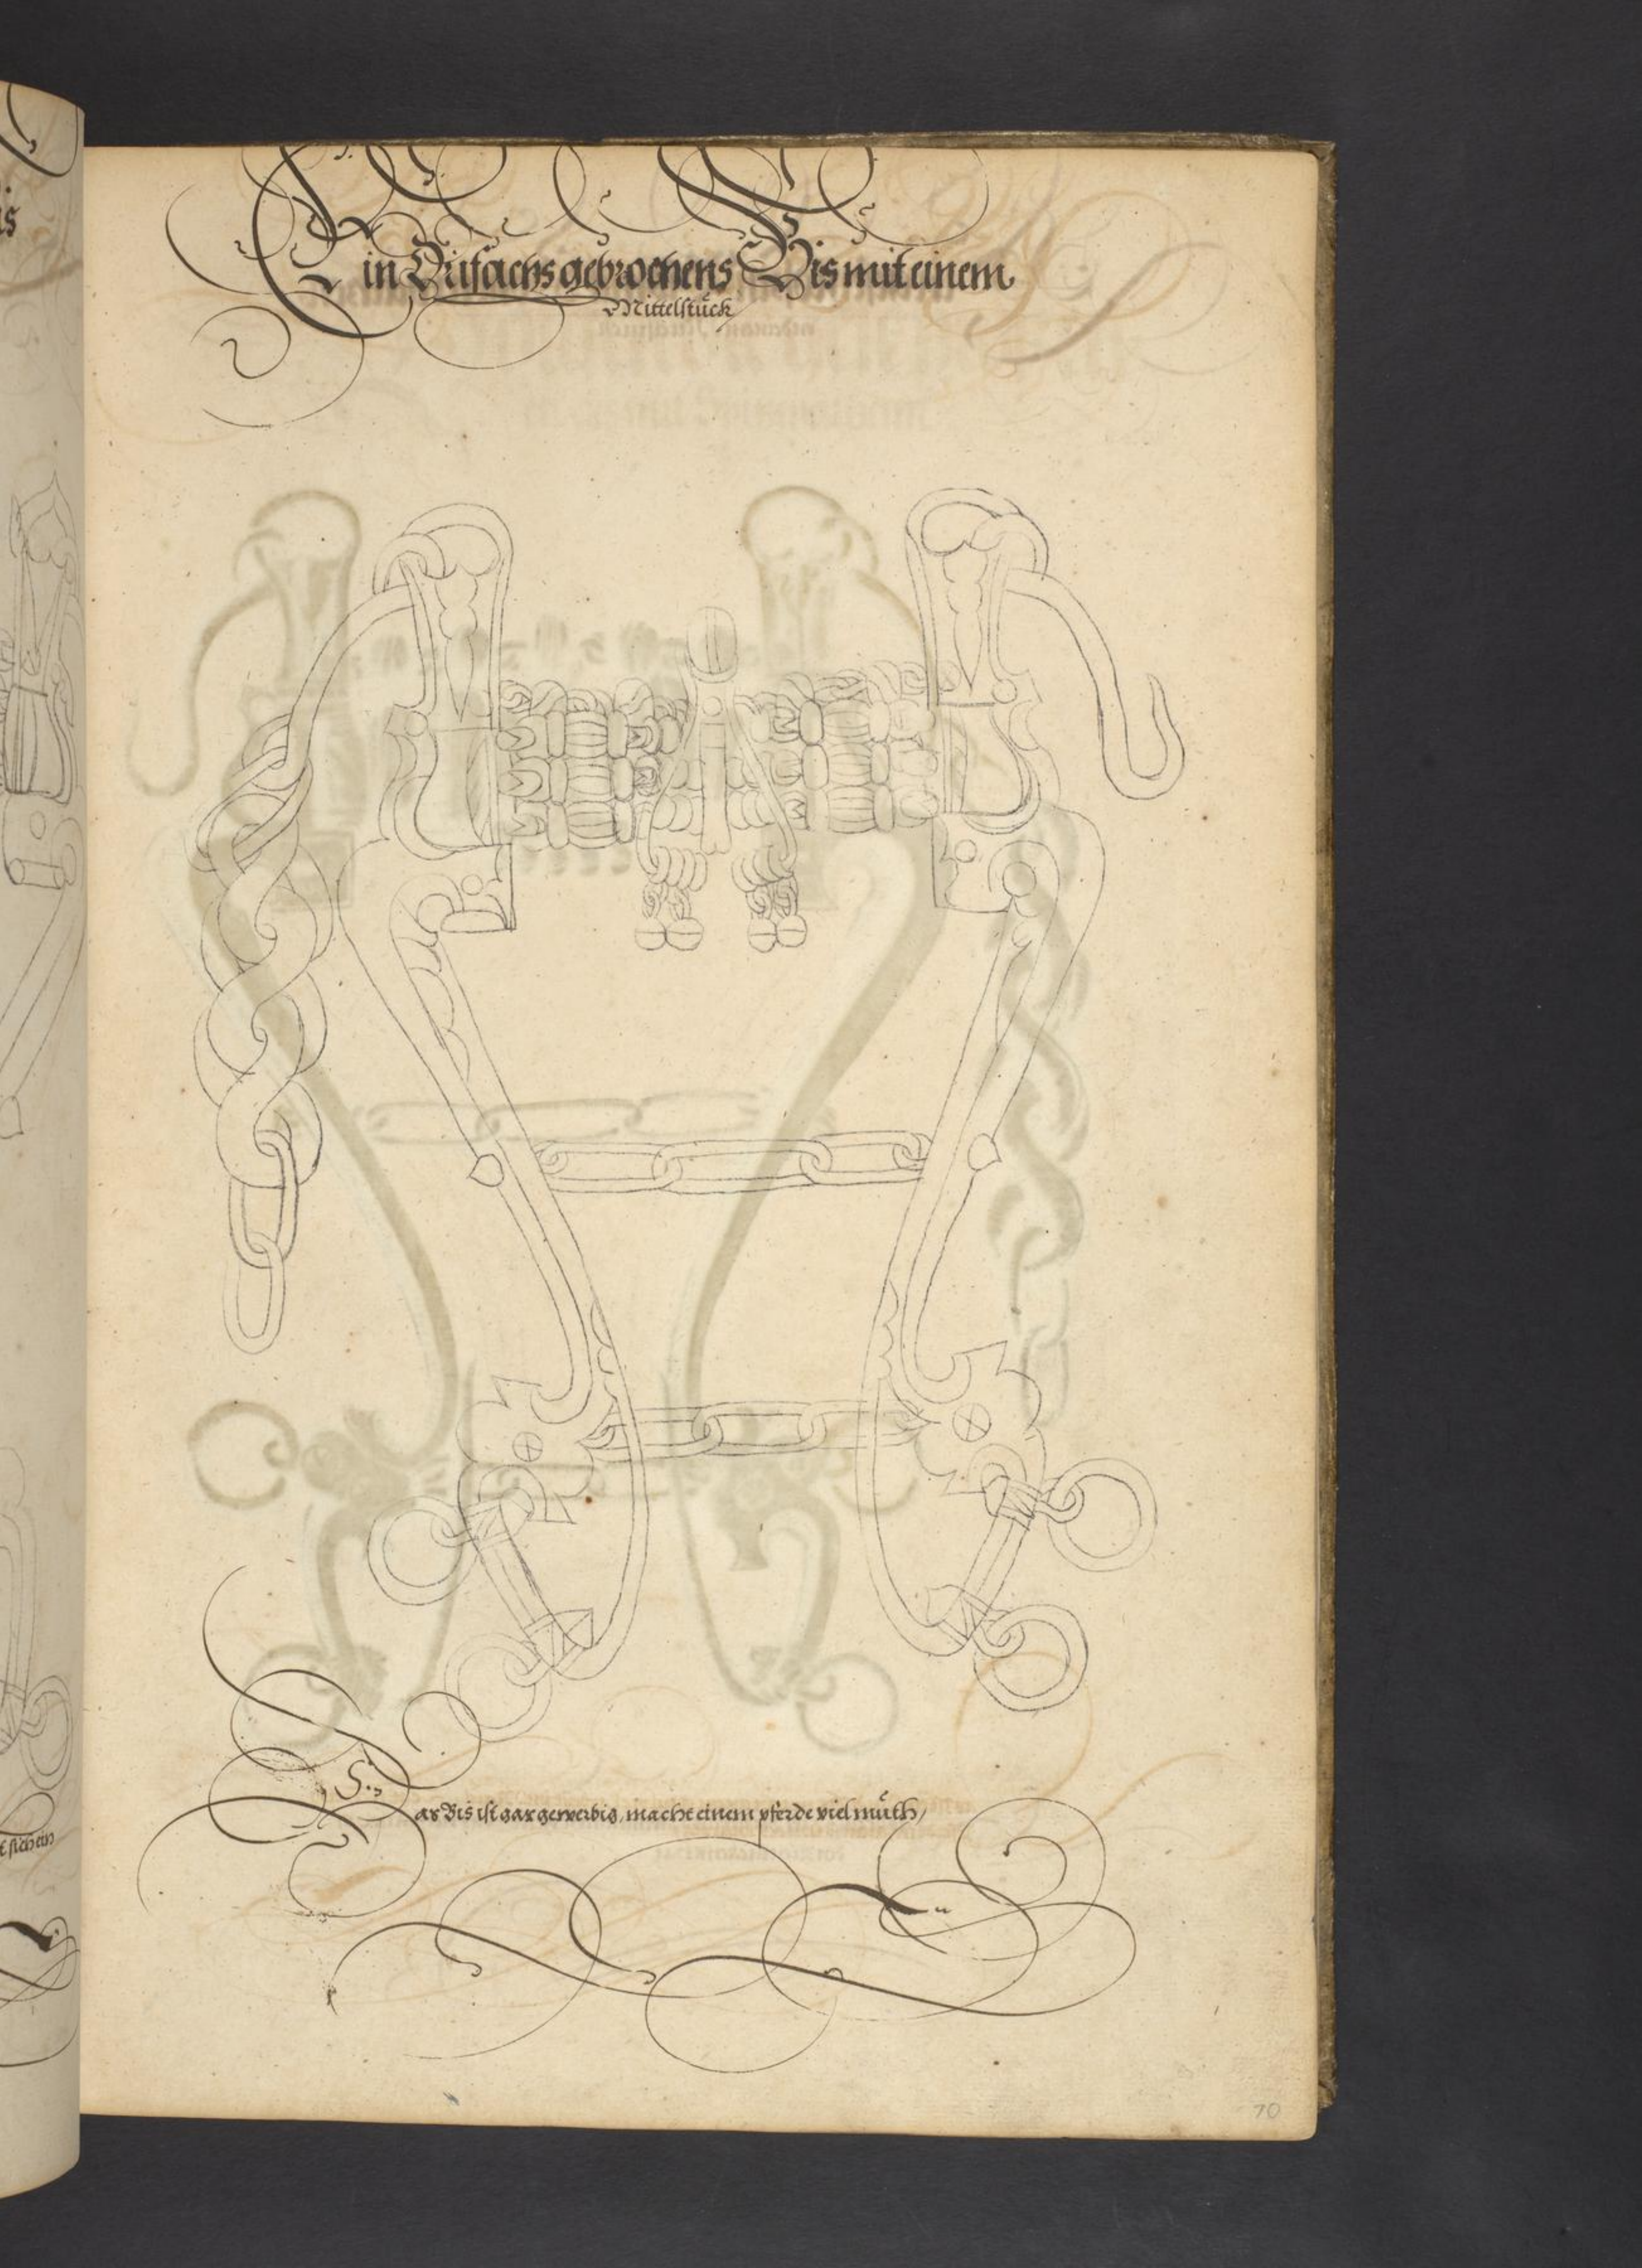 is
Ein Drifachs gebrochens Bis mit einem
Mittelstück
t sich ein
Das Bis ist gar gewerbig, macht einem pferde viel müth,
70